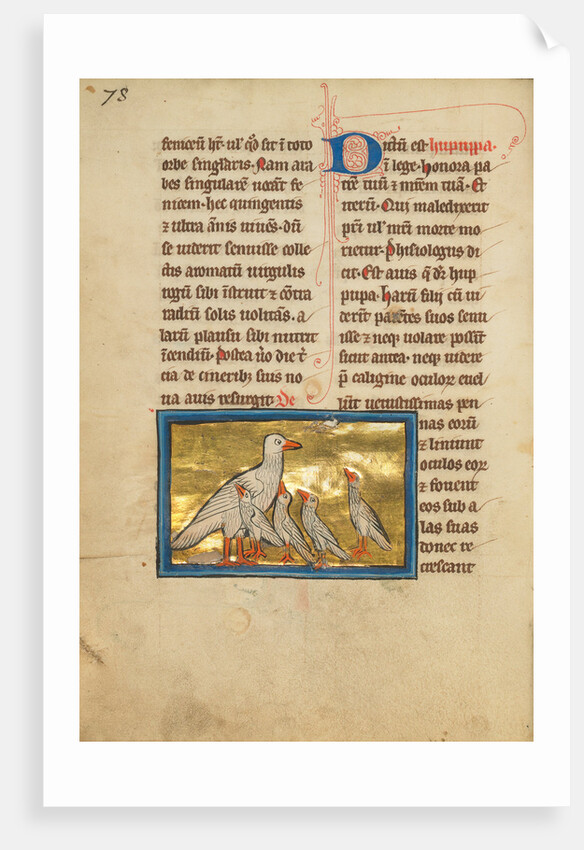 78
fenicem hr̄. ul' q̄ sit ī toto
orbe singlaris. Nam ara
bes singularē uocāt fe
nicem. hec quingentis
⁊ ultra ānis uiuēs. dū
se uiderit senuisse colle
ctis aromatū uirgulis
rogum sibi īstruit ⁊ cōtra
radiū solis uolitās. a
larū plausu sibi nutrit
īcendiū. Postea ū̓o die t̓
cia de cinerib; suis no
ua auis resurgit. De
Dictū est hupupa.
ī lege. Honora pa
trē tuū ⁊ m̄rem tuā. Et
iterū. Qui maledixerit
pr̄i ul' mr̄i morte mo
rietur. Phisiologus di
cit. Est auis q̄ dr̄ hup
pupa. Harū filij cū ui
derīt parētes suos senu
isse ⁊ neq; uolare possīt
sicut antea. neq; uidere
p̄ caligine oculor euel
lūt uetustissimas pen
nas eorū
⁊ liniunt
oculos eor
⁊ fouent
eos sub a
las suas
donec re
crescant